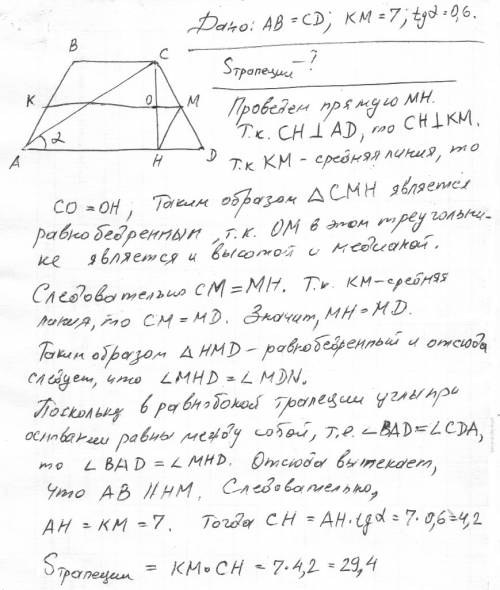 Дано: AB = CD; KM = 7; tgα = 0,6.
Sтрапеции - ?
B
C
K
O
M
α
A
H
D
Проведем прямую MH.
Т.к. CH ⊥ AD, то CH ⊥ KM.
Т.к KM - средняя линия, то
CO = OH; Таким образом △CMH является
равнобедренным, т.к. OM в этом треугольни-
ке является и высотой и медианой.
Следовательно CM = MH. Т.к. KM - средняя
линия, то CM = MD. Значит, MH = MD.
Таким образом △HMD - равнобедренный и отсюда
следует, что ∠MHD = ∠MDN.
Поскольку в равнобокой трапеции углы при
основании равны между собой, т.е. ∠BAD = ∠CDA,
то ∠BAD = ∠MHD. Отсюда вытекает,
что AB ∥ HM. Следовательно,
AH = KM = 7. Тогда CH = AH·tgα = 7·0,6 = 4,2
Sтрапеции = KM·CH = 7·4,2 = 29,4